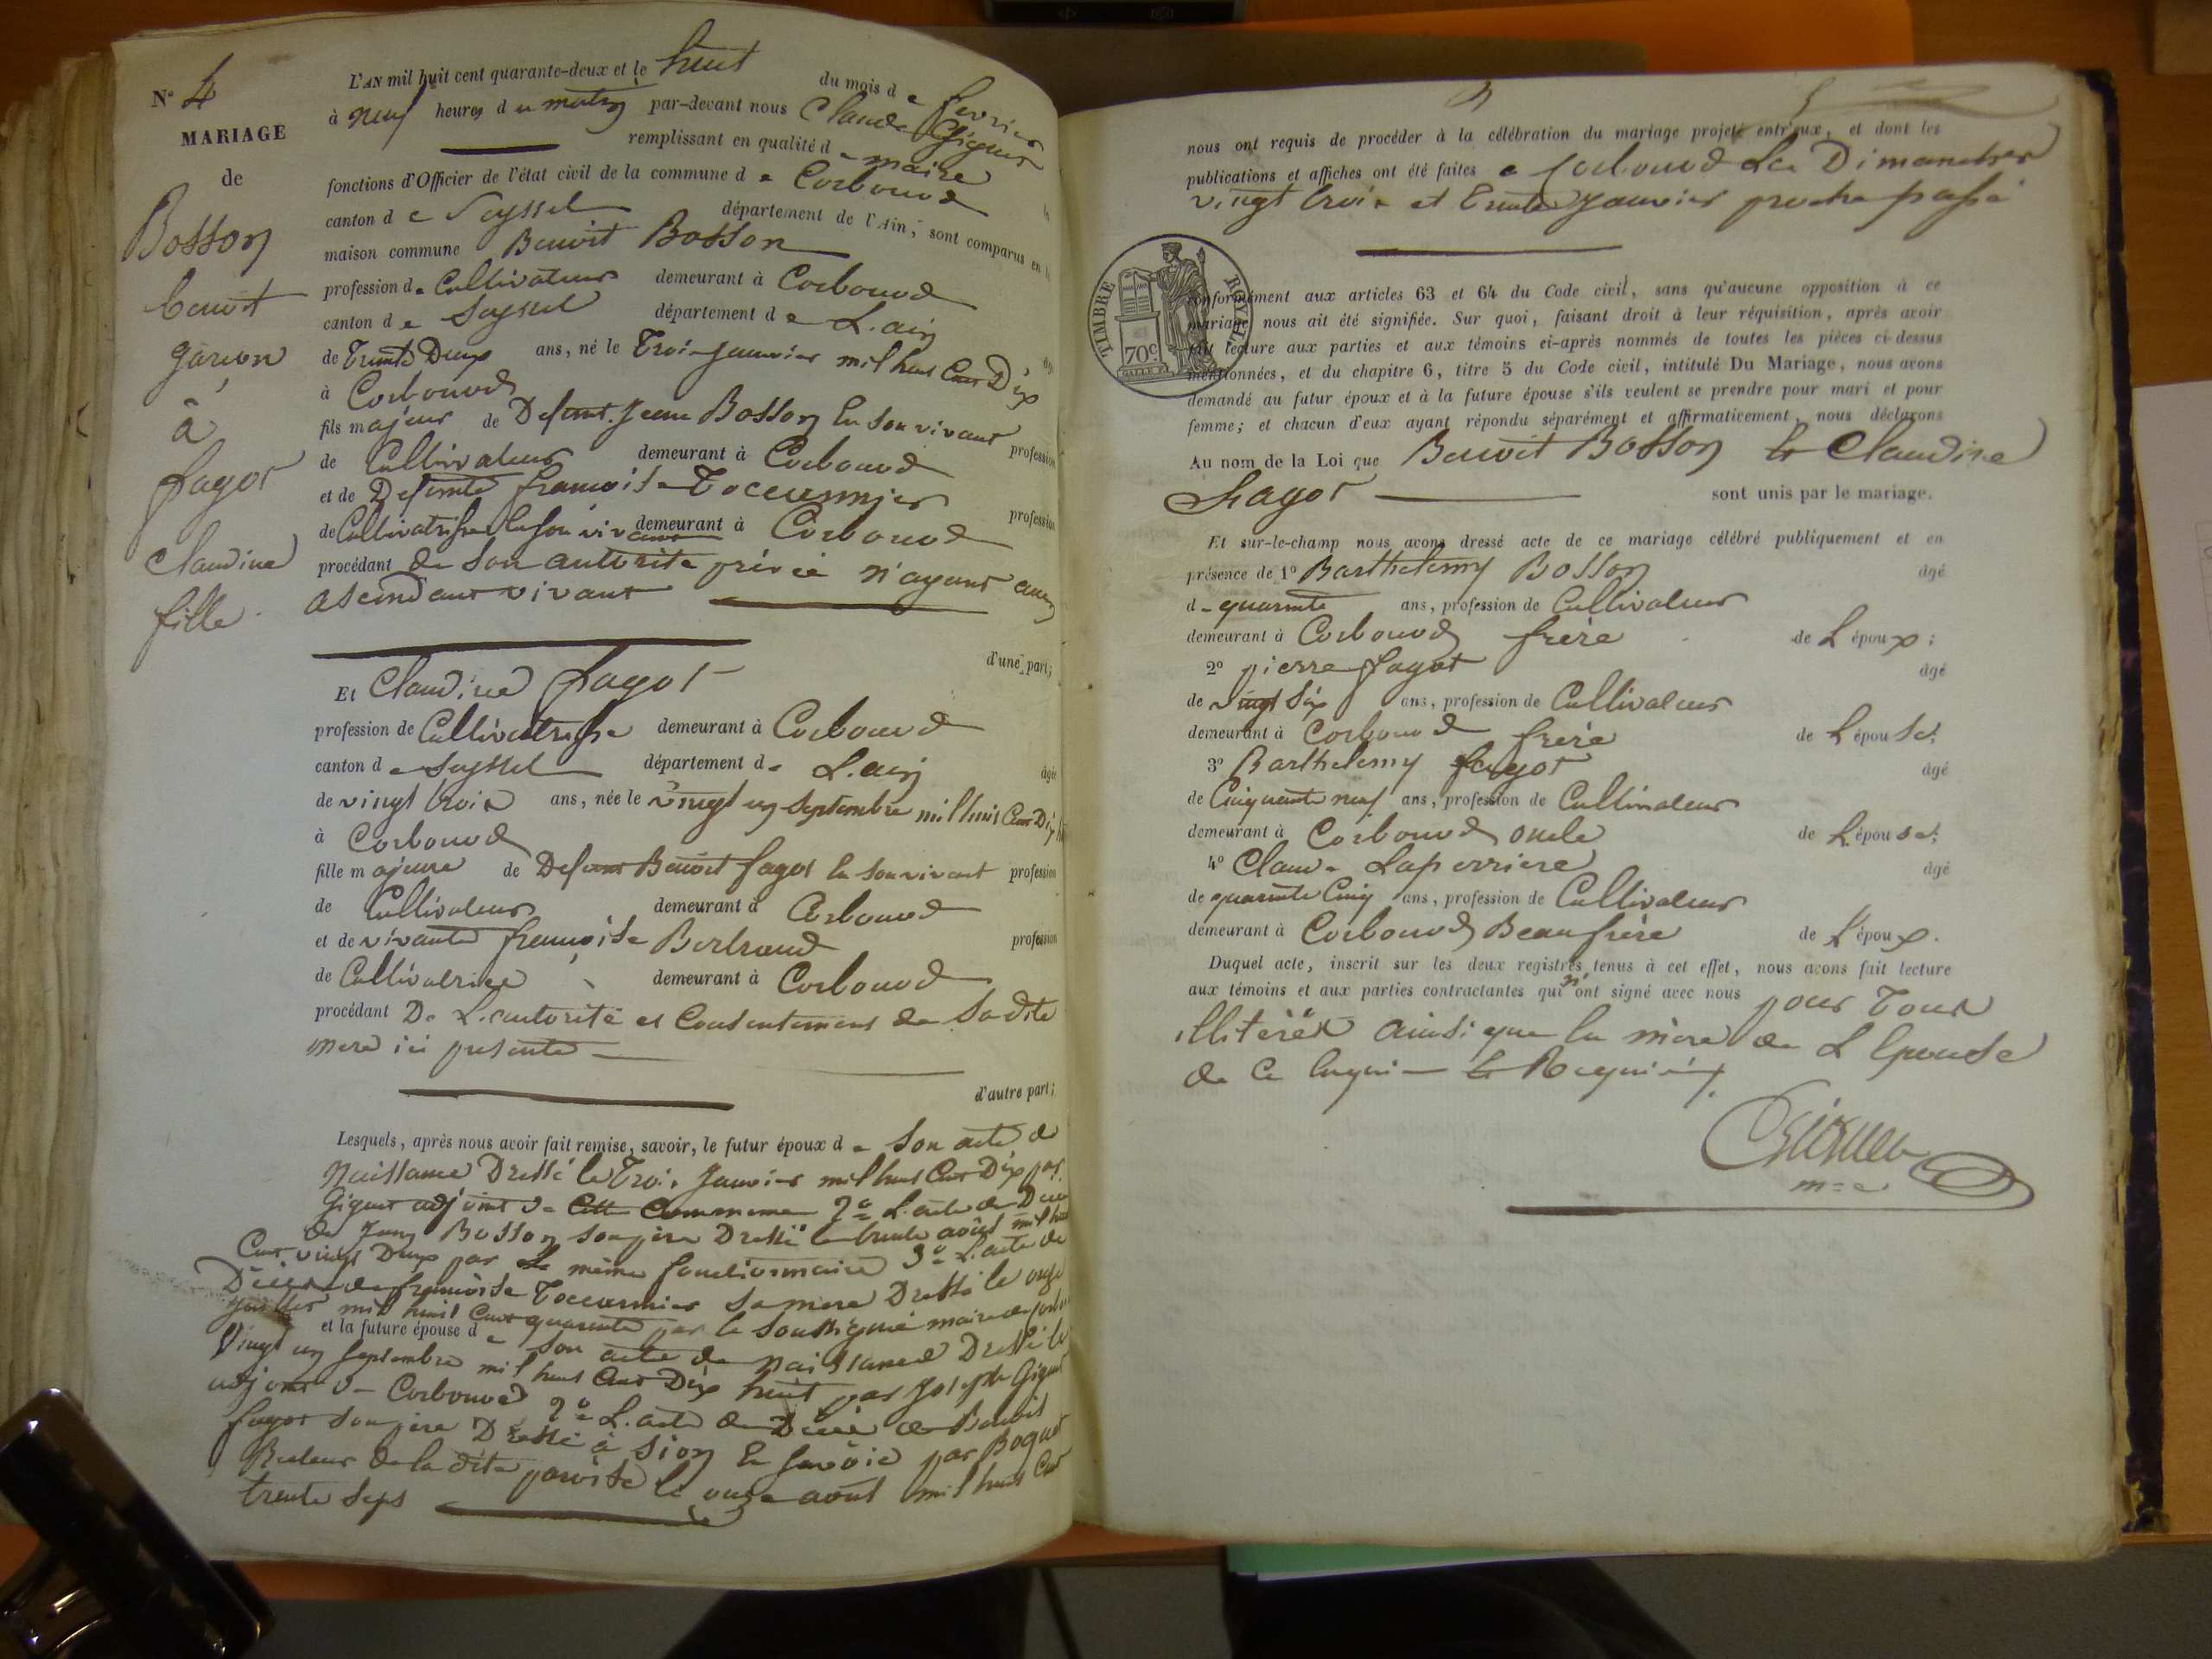 N° 4
MARIAGE
de
Bosson
benoit
garcon
à
fagot
Claudine
fille
L'AN mil huit cent quarante-deux et le huit du mois de fevrier
à neuf heures du matin par-devant nous Claude Giguet
remplissant en qualité de maire
fonctions d'Officier de l'état civil de la commune de Corbonod
canton de Seyssel département de l'Ain, sont comparus en la
maison commune Benoit Bosson
profession de Cultivateur demeurant à Corbonod
canton de Seyssel département de L'ain
de Trente Deux ans, né le Trois janvier mil huit Cent Dix
à Corbonod
fils majeur de Defunt Jean Bosson En son vivant profession
de Cultivateur demeurant à Corbonod
et de Defunte francoise Toccannier profession
de Cultivatrisse En son vivant demeurant à Corbonod
procédant de son autorité privée n'ayant aucun
ascendant vivant
d'une part;
Et Claudine fagot
profession de Cultivatrisse demeurant à Corbonod
canton de Seyssel département de L'ain âgée
de vingt trois ans, née le vingt un septembre mil huit Cent Dix
à Corbonod
fille majeure de Defunt Benoit fagot En son vivant profession
de Cultivateur demeurant à Corbonod
et de vivante francoise Bertrand profession
de Cultivatrice demeurant à Corbonod
procédant De L'autorité et Consentement de Sa dite
mere ici presente
d'autre part;
Lesquels, après nous avoir fait remise, savoir, le futur époux de son acte de
Naissance Dressé le Trois Janvier mil huit Cent Dix par
Giguet adjoint de Cette Commune 2° L'acte de Décès
de Jean Bosson son père Dressé le trente août mil huit
Cent vingt Deux par le même fonctionnaire 3° L'acte de
Décès de francoise Toccannier sa mere Dressé le onze
juillet mil huit Cent quarante par le soussigné maire de
et la future épouse de son acte de naissance Dressé le
Vingt un septembre mil huit Cent Dix huit par Joseph Giguet
adjoint de Corbonod 2° L'acte de Décès de Benoit
fagot son père Dressé à Sion En Savoie par Boguet
Recteur de la dite paroisse le onze août mil huit Cent
trente sept
nous ont requis de procéder à la célébration du mariage projeté entr'eux, et dont les
publications et affiches ont été faites a Corbonod Les Dimanches
vingt trois et Trente Janvier proche passé
TIMBRE ROYAL
70c
conformément aux articles 63 et 64 du Code civil, sans qu'aucune opposition à ce
mariage nous ait été signifiée. Sur quoi, faisant droit à leur réquisition, après avoir
fait lecture aux parties et aux témoins ci-après nommés de toutes les pièces ci-dessus
mentionnées, et du chapitre 6, titre 5 du Code civil, intitulé Du Mariage, nous avons
demandé au futur époux et à la future épouse s'ils veulent se prendre pour mari et pour
femme; et chacun d'eux ayant répondu séparément et affirmativement, nous déclarons
Au nom de la Loi que Benoit Bosson Et Claudine
Fagot sont unis par le mariage.
Et sur-le-champ nous avons dressé acte de ce mariage célébré publiquement et en
présence de 1° Barthelemy Bosson âgé
de quarante ans, profession de Cultivateur
demeurant à Corbonod frère de L'époux;
2° pierre fagot âgé
de vingt six ans, profession de Cultivateur
demeurant à Corbonod frère de L'épouse;
3° Barthelemy fagot âgé
de Cinquante neuf ans, profession de Cultivateur
demeurant à Corbonod oncle de L'épouse;
4° Claude Laperriere âgé
de quarante Cinq ans, profession de Cultivateur
demeurant à Corbonod Beaufrère de L'époux.
Duquel acte, inscrit sur les deux registres tenus à cet effet, nous avons fait lecture
aux témoins et aux parties contractantes qui n'ont signé avec nous pour Tous
illiterés ainsi que la mère de L'Epouse
de Ce Enquis Et Requis
Giguet